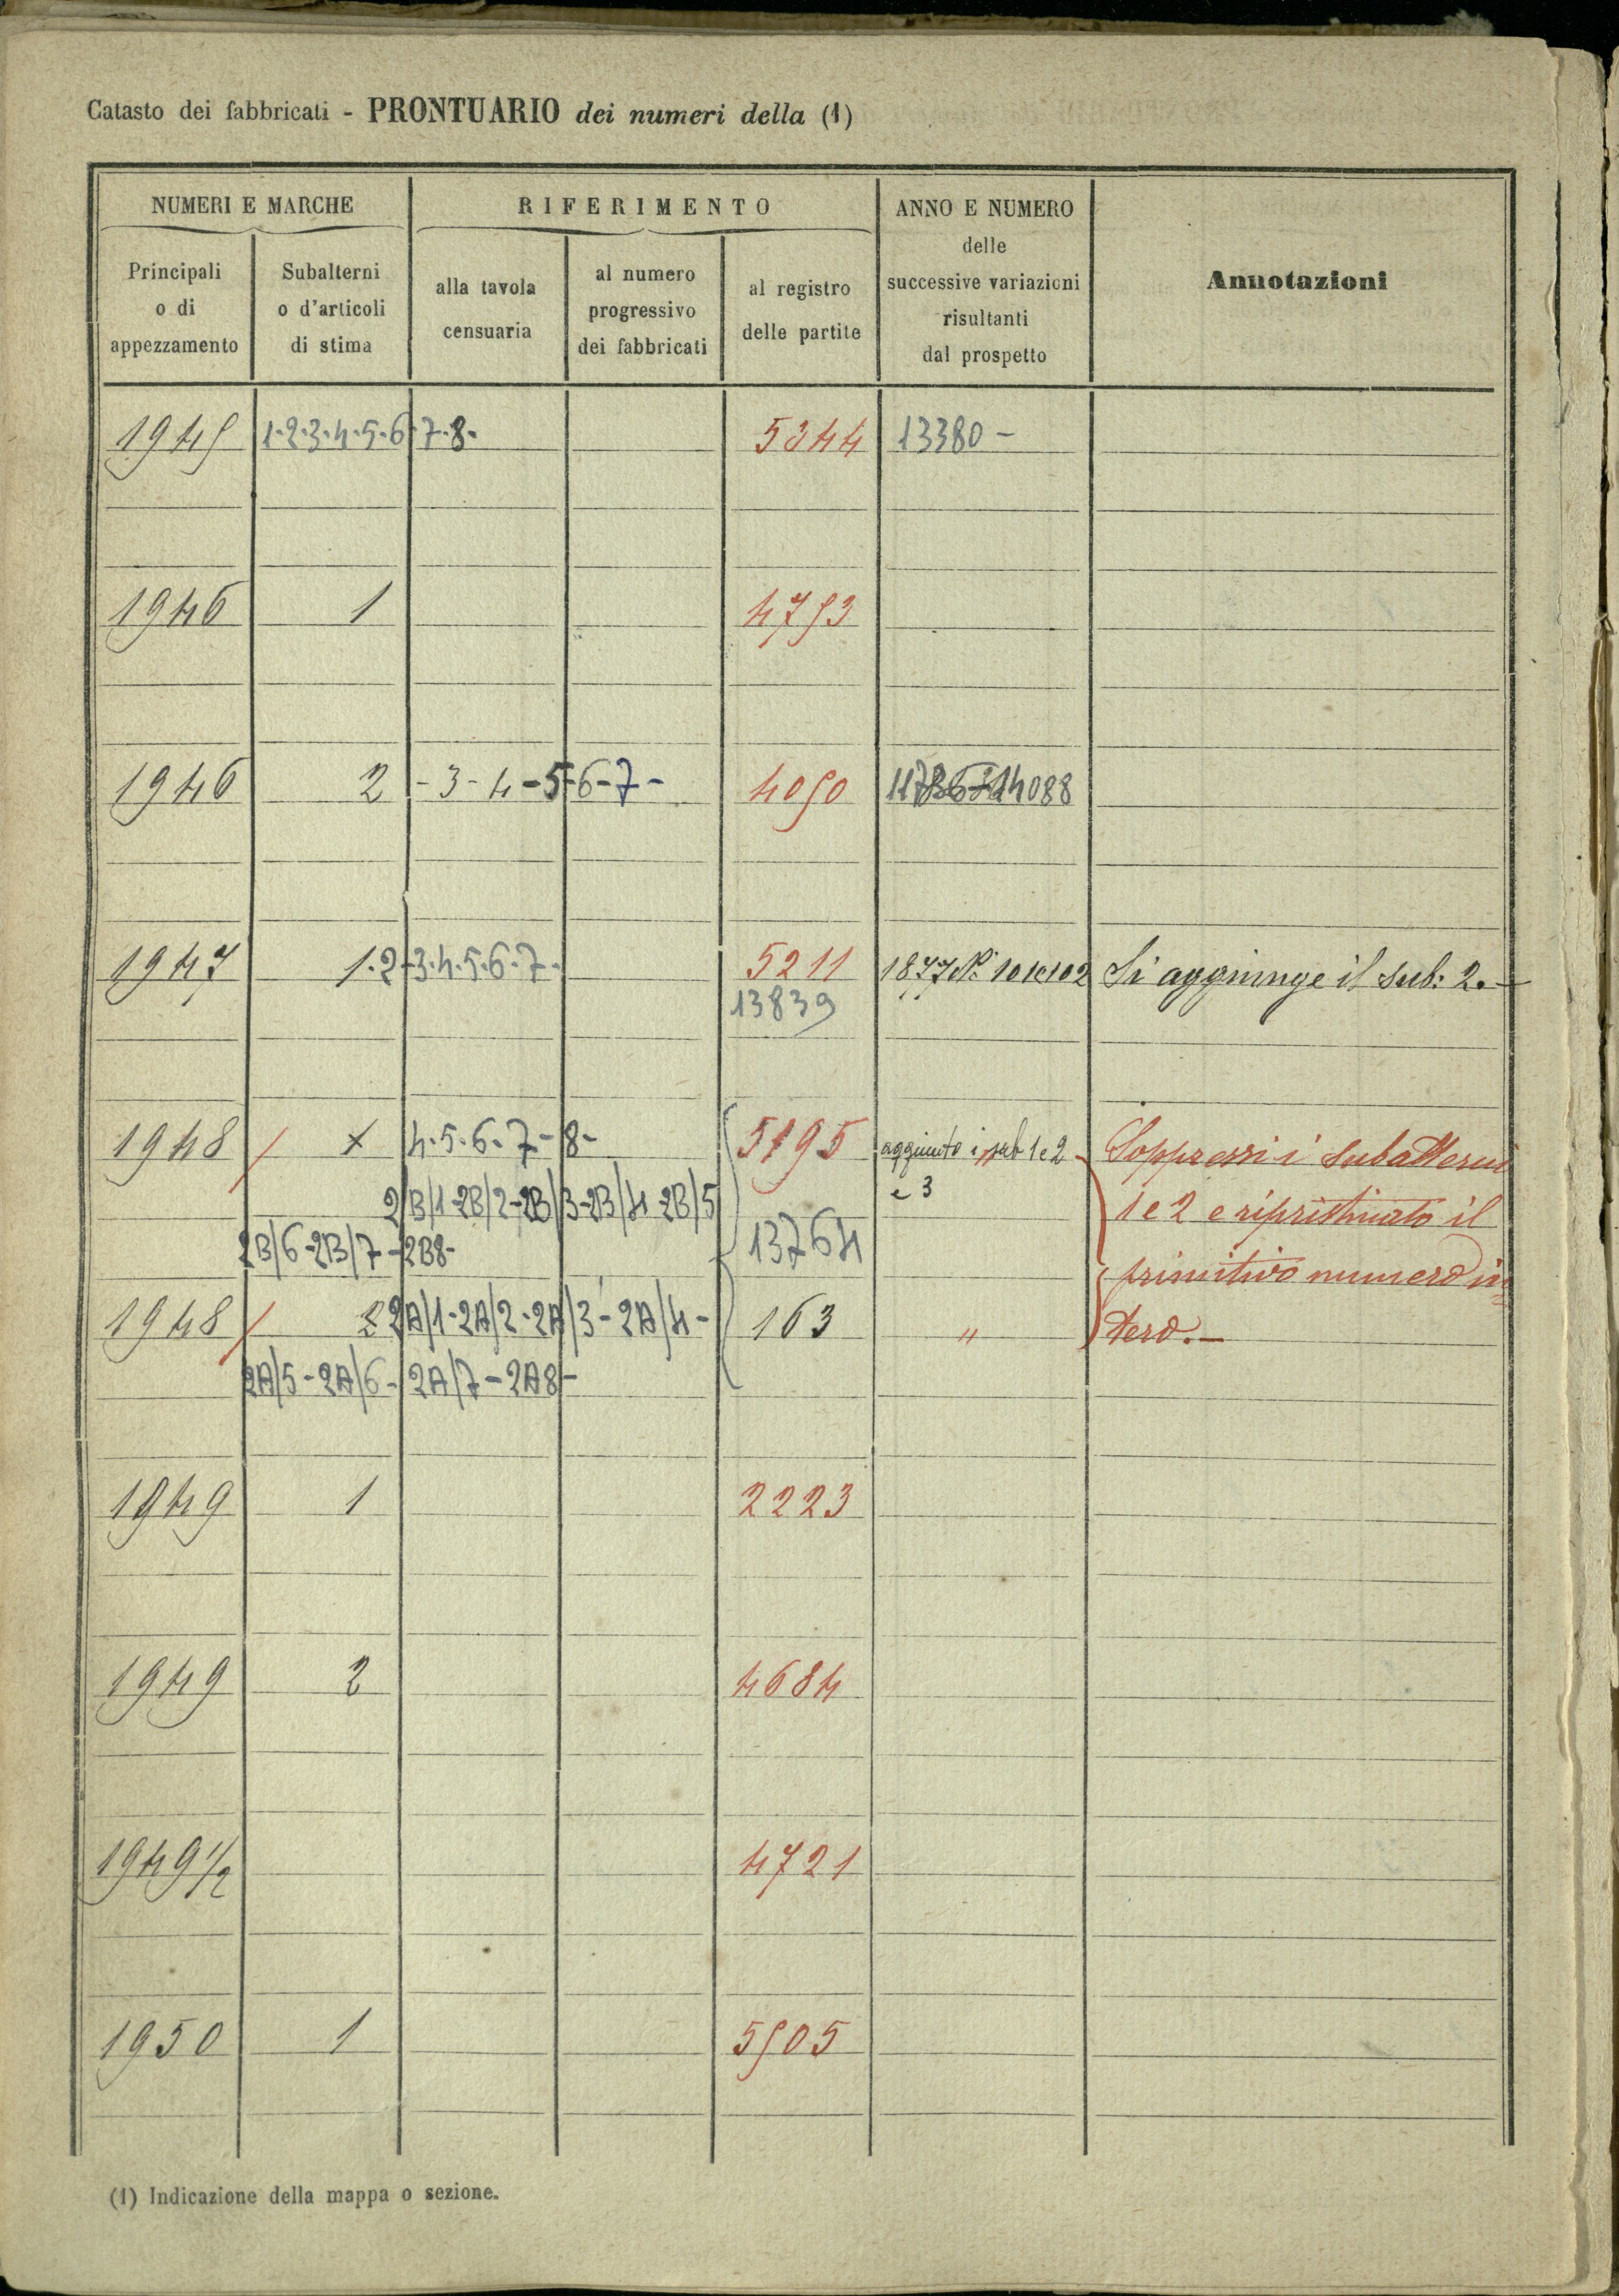 Catasto dei fabbricati - PRONTUARIO dei numeri della (1)
NUMERI E MARCHE
RIFERIMENTO
ANNO E NUMERO
delle
successive variazioni
risultanti
dal prospetto
Annotazioni
Principali
o di
appezzamento
Subalterni
o d'articoli
di stima
alla tavola
censuaria
al numero
progressivo
dei fabbricati
al registro
delle partite
1945 1-2-3-4-5-6-7-8- 5344 13380 -
1946 1 4753
1946 2 - 3 - 4 - 5 - 6 - 7 - 4050 14088
1947 1.2-3-4-5-6-7- 5211 1877 N. 101e102 Si aggiunge il sub: 2. -
13839
1948 / 4-5-6-7-8- 5195 aggiunto i sub 1 e 2 Soppressi i subalterni
e 3
2B/1-2B/2-2B/3-2B/4-2B/5 1 e 2 e ripristinato il
2B/6-2B/7-2B8- 13764
primitivo numero in=
1948 / 2 2A/1-2A/2-2A/3-2A/4- 163 " tero. -
2A/5-2A/6-2A/7-2A8-
1949 1 2223
1949 2 4684
1949 1/2 4721
1950 1 5505
(1) Indicazione della mappa o sezione.